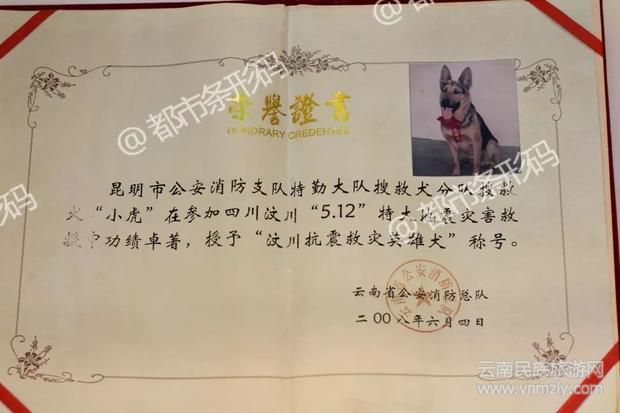 荣誉證書
HONORARY CREDENTIAL
昆明市公安消防支队特勤大队搜救犬分队搜救
犬“小虎”在参加四川汶川“5.12”特大地震灾害救
援中功绩卓著，授予“汶川抗震救灾英雄犬”称号。
云南省公安消防总队
二00八年六月四日
云南省公安消防总队
@都市条形码
@都市条形码
@都市条形码
@都市条形码
云南民族旅游网
www.ynmzly.com